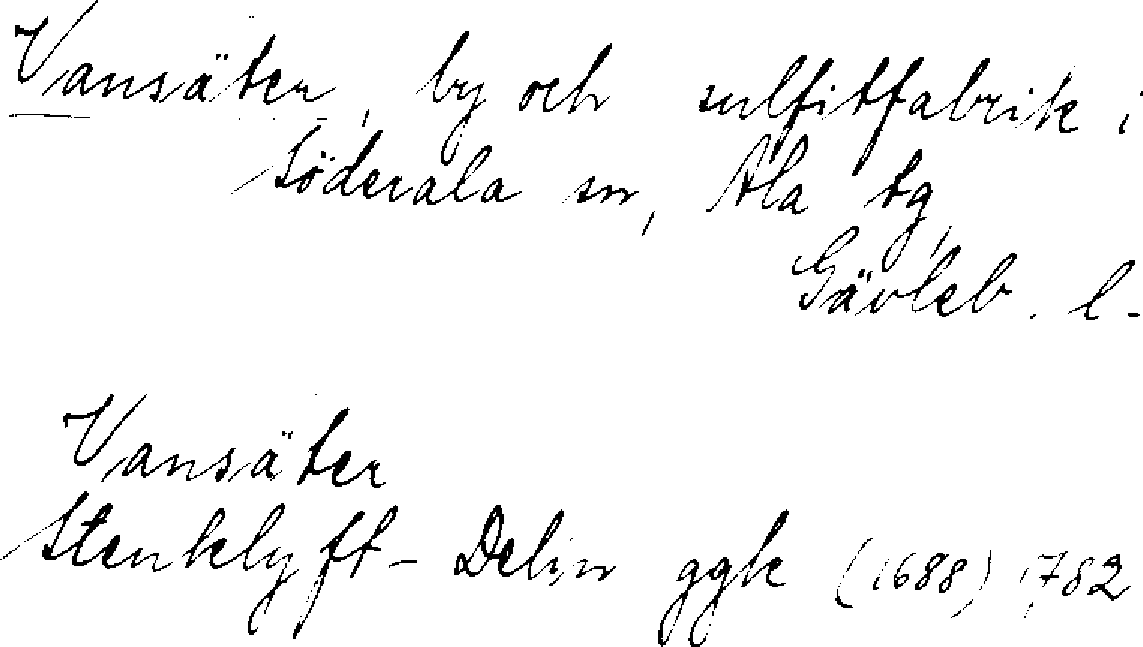 Vansäter, by och sulfitfabrik i
Söderala sn, Ala tg,
Gävleb. l.
Vansäter
Stenklyft-Delin ggk (1688) 1782